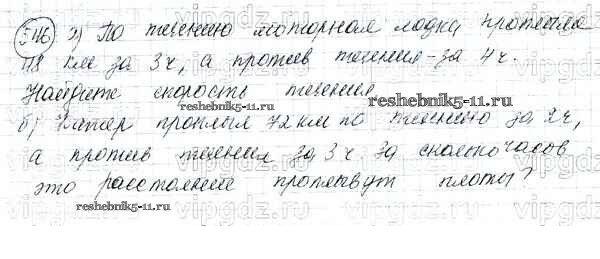 546 а) По течению моторная лодка проплыла
48 км за 3 ч, а против течения - за 4 ч.
Найдите скорость течения.
reshebnik5-11.ru
б) Катер проплыл 72 км по течению за 2 ч,
а против течения за 3 ч. За сколько часов
это расстояние проплывут плоты?
reshebnik5-11.ru
vipgdz.ru